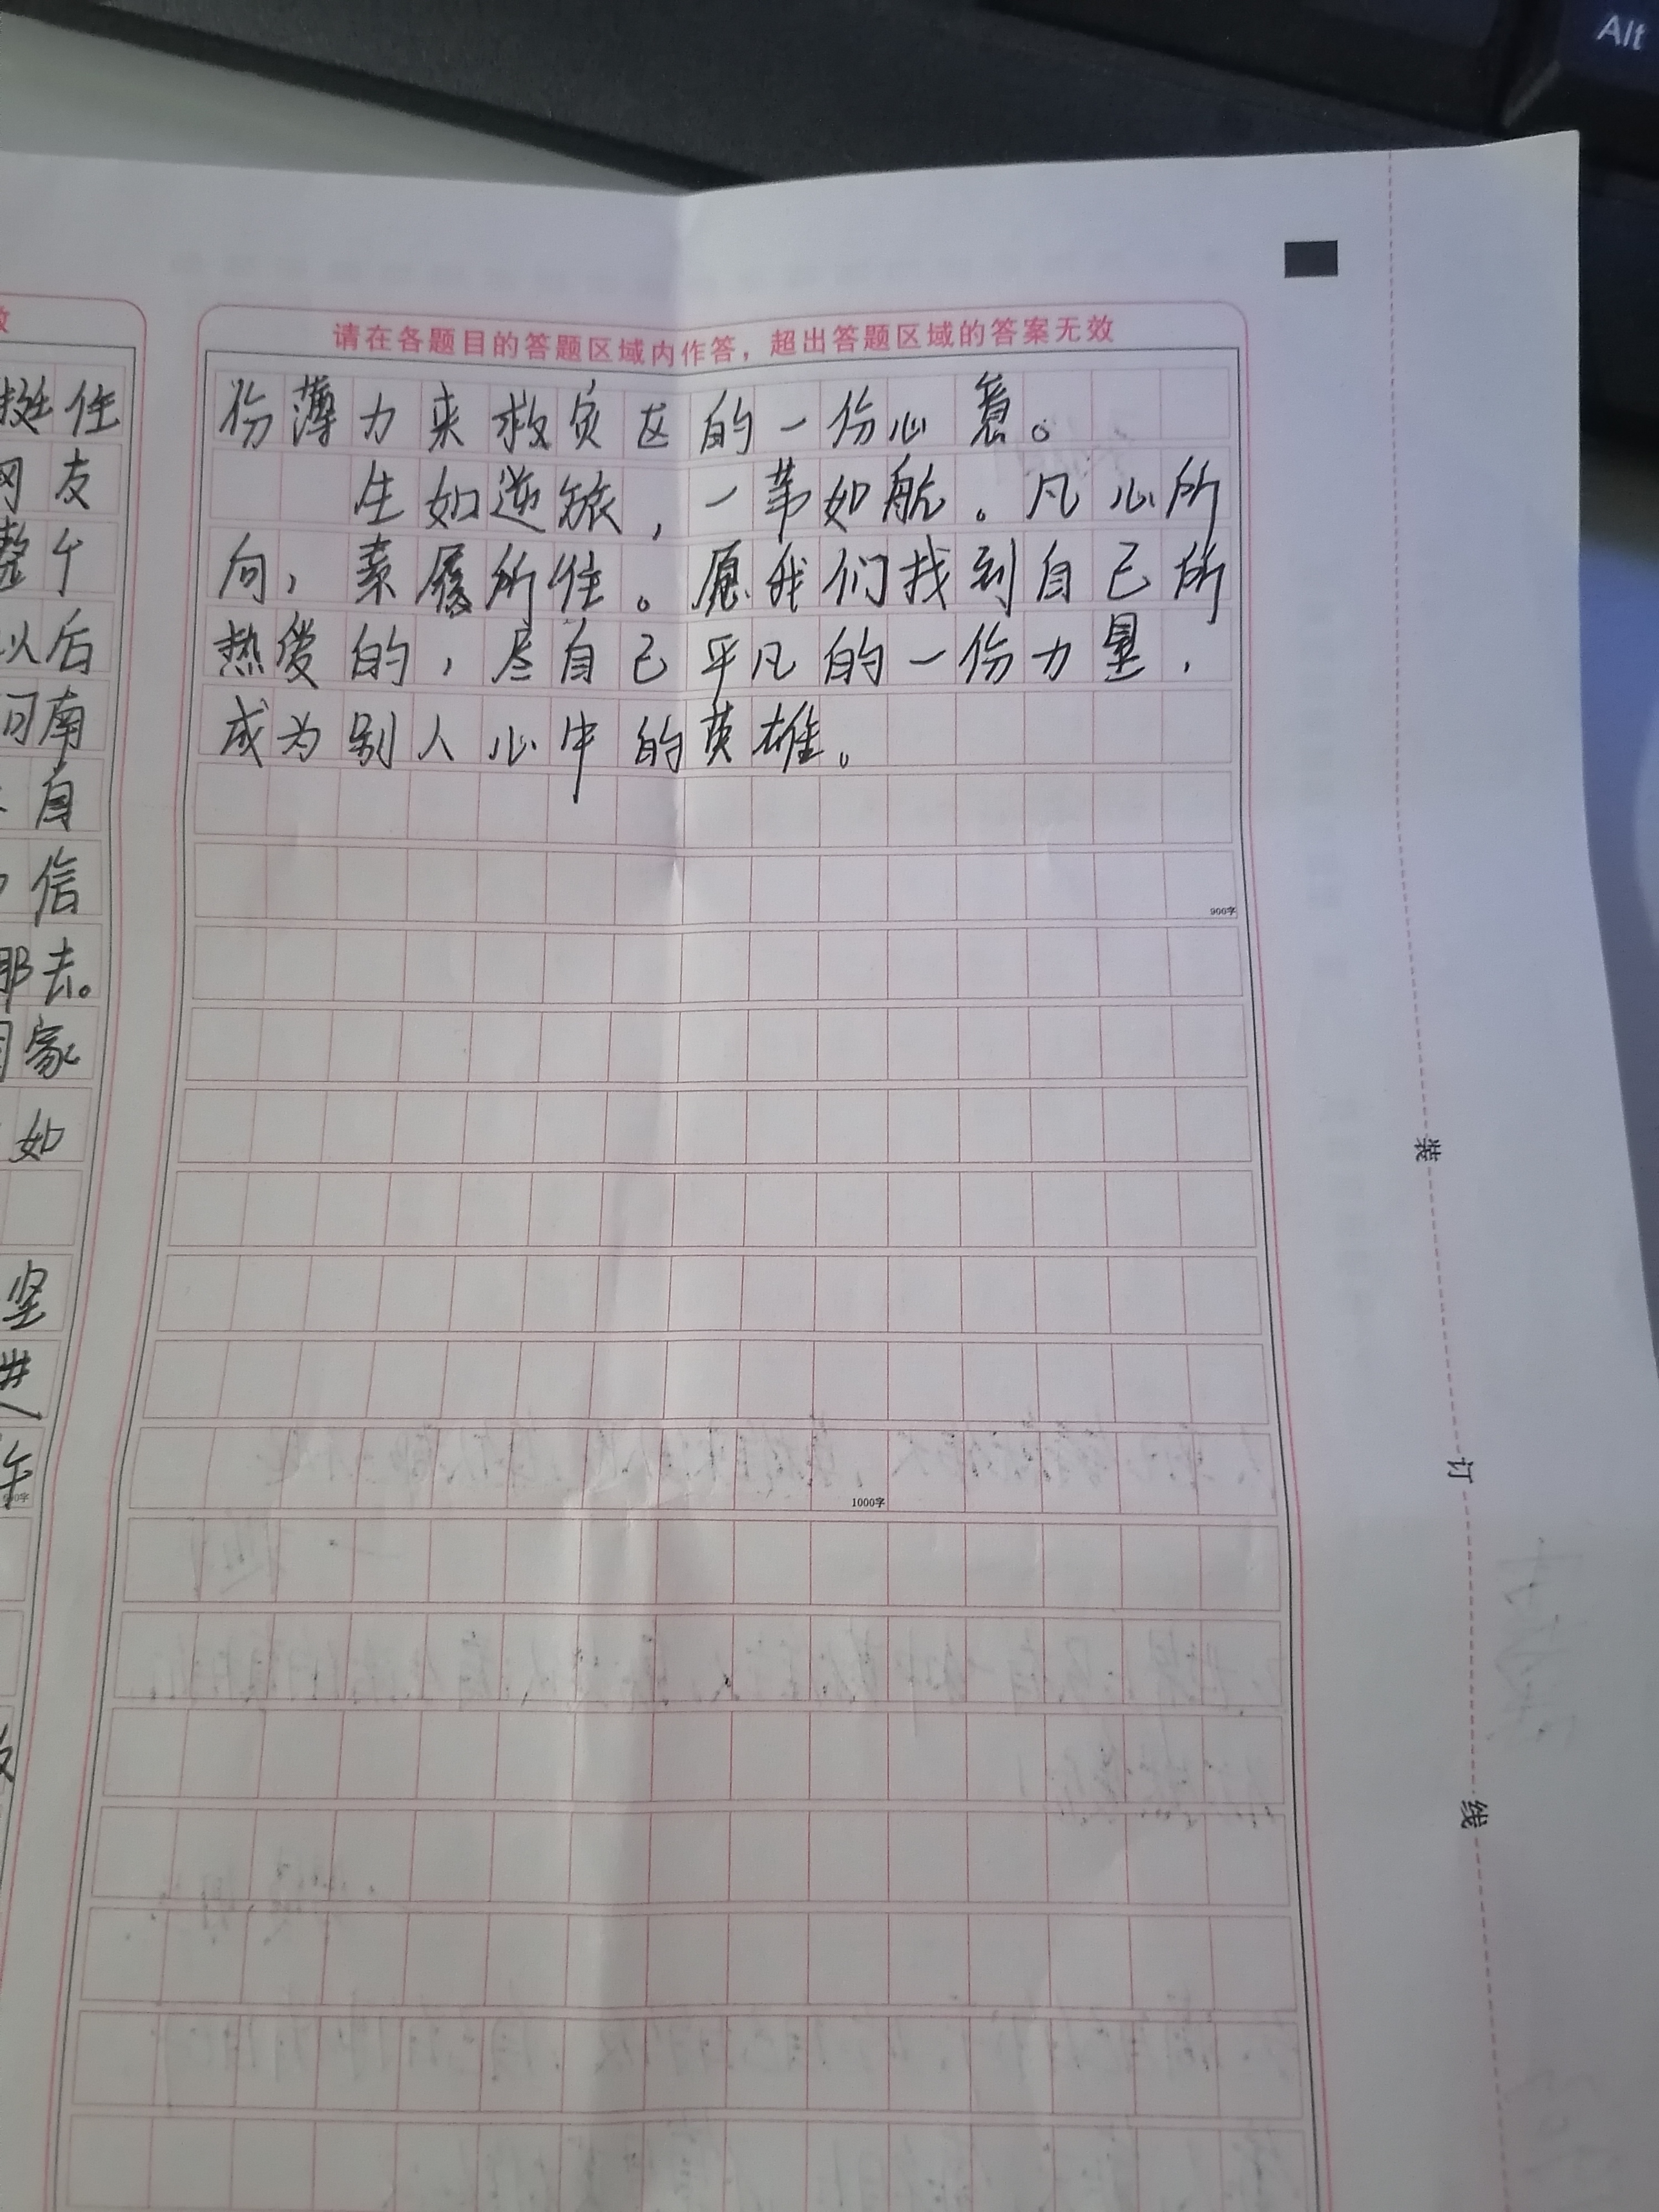 Alt
请在各题目的答题区域内作答，超出答题区域的答案无效
份薄力来救灾区的一份心意。
生如逆旅，一苇如航。凡心所
向，素履所往。愿我们找到自己所
热爱的，尽自己平凡的一份力量，
成为别人心中的英雄。
900字
1000字
挺住
网友
整个
以后
河南
自
信
那去。
国家
如
坚
进
年
装
订
线